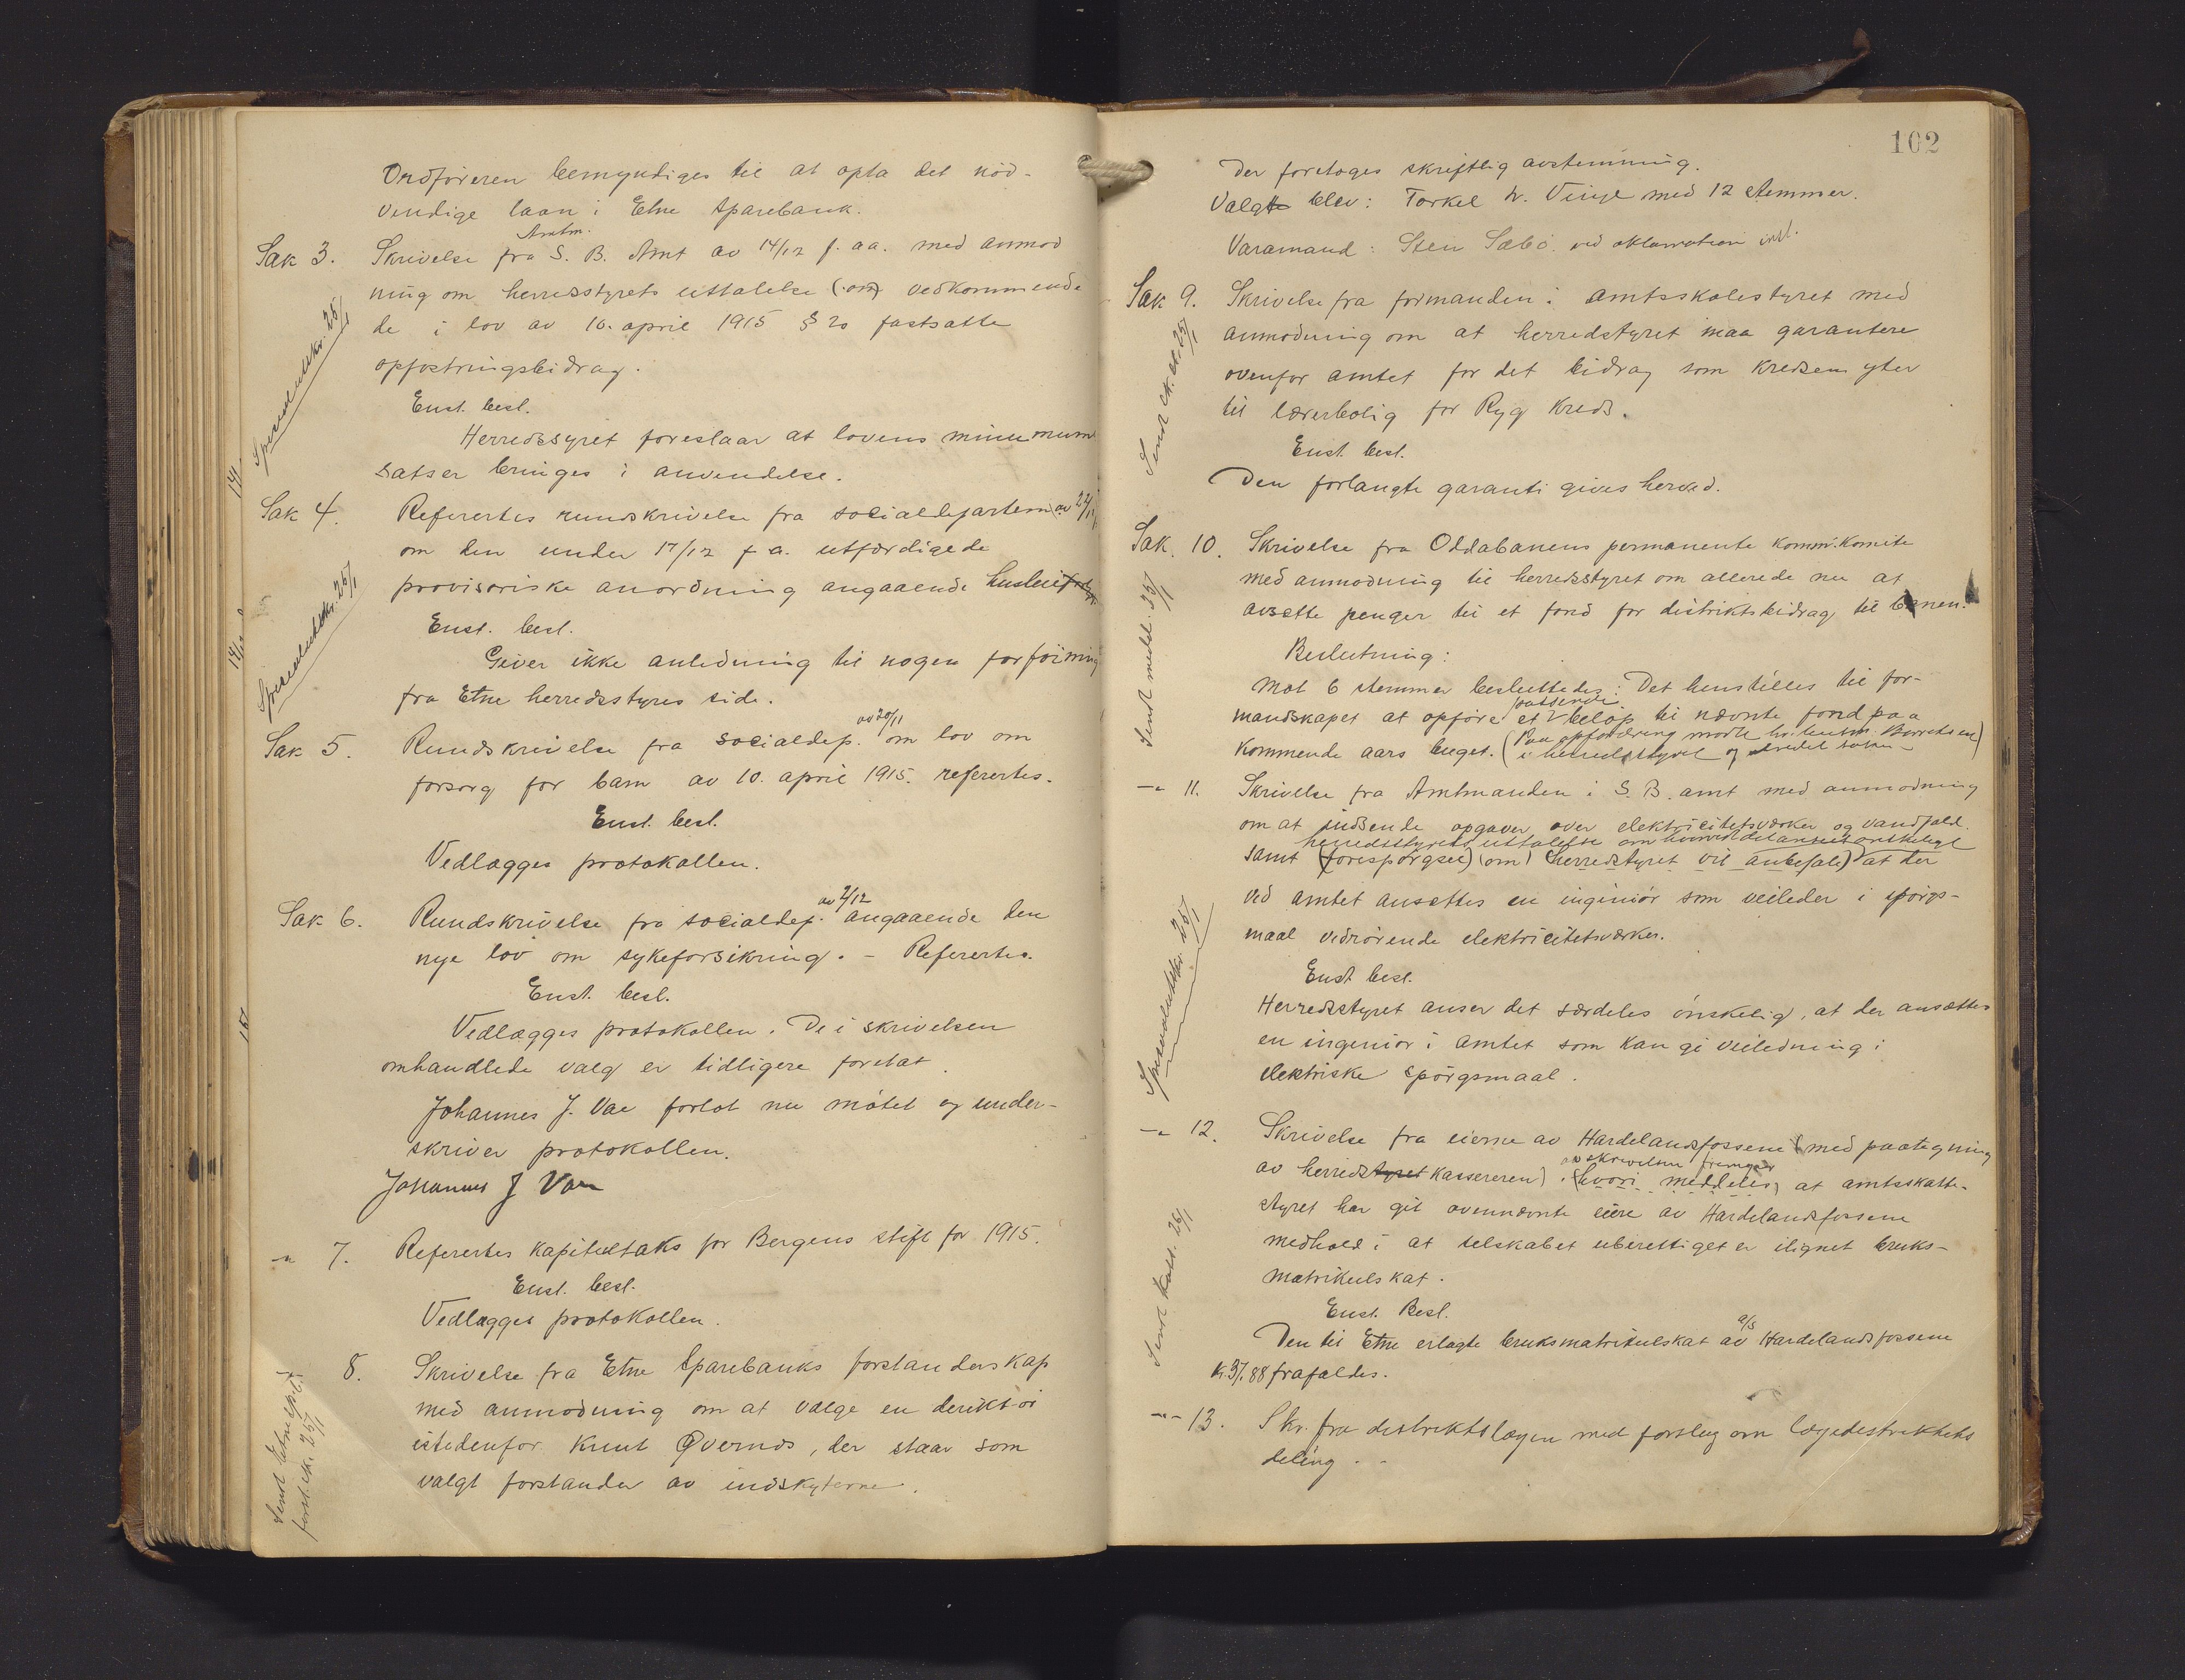 Ordföreren bemyndiges til at opta det nöd-
vendige laan i Etne Sparebank.
Amtm.
Sak 3. Skrivelse fra S. B. Amt av 14/12 f. aa. med anmod
ning om herredsstyrets uttalelse (om) vedkommende
de i lov av 10. april 1915 § 20 fastsatte
opfostringsbidrag.
Enst. besl.
Herredssyret foreslaar at lovens minumum
satser bringes i anvendelse.
Sak 4. Referertes rundskrivelse fra socialdepartem av 22/11
om den under 17/12 f a. utfærdigede
provisoriske anordning angaaende husleie
Enst. besl.
Giver ikke anledning til nogen forföining
fra Etne herredsstyres side.
av 20/11
Sak 5. Rundskrivelse fra socialdep. om lov om
forsorg for barn av 10. april 1915. referertes.
Enst. besl.
Vedlægges protokollen.
av 2/12
Sak 6. Rundskrivelse fra socialdep. angaaende den
nye lov om sykeforsikring. - Referertes.
Enst. besl.
Vedlægges protokollen. De i skrivelsen
omhandlede valg er tidligere foretat.
Johannes J. Vae forlot nu mötet og under-
skriver protokollen.
Johannes J Vae
-"- 7. Referertes kapiteltaks for Bergens stift for 1915.
Enst. besl.
Vedlægges protokollen.
8. Skrivelse fra Etne Sparebanks forstanderskap
med anmodning om at valge en derektör
istedenfor Knut Qvernes, der staar som
valgt forstander av indskyterne.
Spesialutskr. 25/1
Spesialutskr. 25/1
Sendt Etne spb.
forst.sk. 25/1
102
Der foretoges skriftlig avstemning.
Valgte blev: Torkel h. Vinje med 12 stemmer.
Varamand: Sten Sæbö. ved aklamation
Sak 9. Skrivelse fra formanden i amtsskolestyret med
anmodning om at herredstyret maa garantere
ovenfor amtet for det bidrag som kredsen yter
til lærerbolig for Ryg Kreds.
Enst. besl.
Den forlangte garanti gives herved.
Sak. 10. Skrivelse fra Oddabanens permanente komm. komite
med anmodning til herredsstyret om allerede nu at
avsætte penger til et fond for distriktsbidrag til banen.
Beslutning:
Mot 6 stemmer besluttedes: Det henstilles til for-
passende
mandskapet at opföre et beløp til nævnte fond paa
kommende aars buget. (Paa opfordring mötte hr. lensm. Borretsen
i herredsstyret og
-"- 11. Skrivelse fra Amtmanden i S. B. amt med anmodning
om at indsende opgaver over elektricitetsværker og vandfald.
herredsstyrets uttalelse om hvorvidt det ansees önskeligt
samt (forespörgsel) (om) (herredstyret vil anbefale) at der
ved amtet ansættes en ingeniör som veileder i spörgs-
maal vedrörende elektricitetsværker.
Enst. besl.
Herredsstyret anser det særdeles önskelig, at der ansættes
en ingeniör i amtet som kan gi veiledning i
elektriske spörgsmaal.
-"- 12. Skrivelse fra eierne av Hardelandsfossene (med paategning
av skrivelsen fremgaar
av herredstyret kassereren). (hvori meddeles) at amtsskatte-
styret har git ovennævnte eiere av Hardelandsfossene
medhold i at selskabet uberettiget er ilignet bruks-
matrikulskat.
Enst. Besl.
a/s
Den til Etne erlagte bruksmatrikulskat av Hardelandsfossene
Kr. 37.88 frafaldes.
-"- 13. Skr. fra destriktslægen med forslag om lægedestriktets
deling. -
Sendt 25/1
Sendt medd. 25/1
Spesialutskr. 25/1
Sendt kass. 26/1